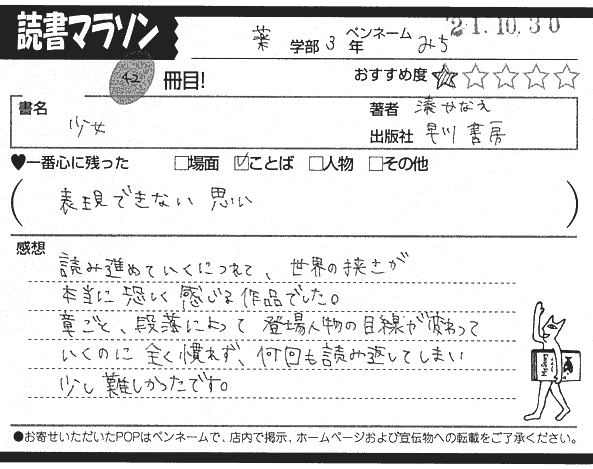 読書マラソン
薬 学部 3 年 ペンネーム みち
'21.10.30
42 冊目!
おすすめ度 ★☆☆☆☆
書名 少女
著者 湊かなえ
出版社 早川書房
♥一番心に残った □場面 ☑ことば □人物 □その他
(表現できない思い)
感想
読み進めていくにつれて、世界の狭さが
本当に恐しく感じる作品でした。
章ごと、段落によって登場人物の目線が変わって
いくのに全く慣れず、何回も読み返してしまい
少し難しかったです。
●お寄せいただいたPOPはペンネームで、店内で掲示、ホームページおよび宣伝物への転載をご了承ください。